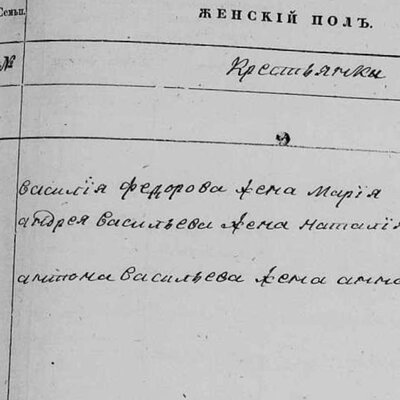 Семьи.
ЖЕНСКІЙ ПОЛЪ.
№
Крестьянки
василія федорова жена Марія
андрея васильева жена наталія
антона васильева жена анна